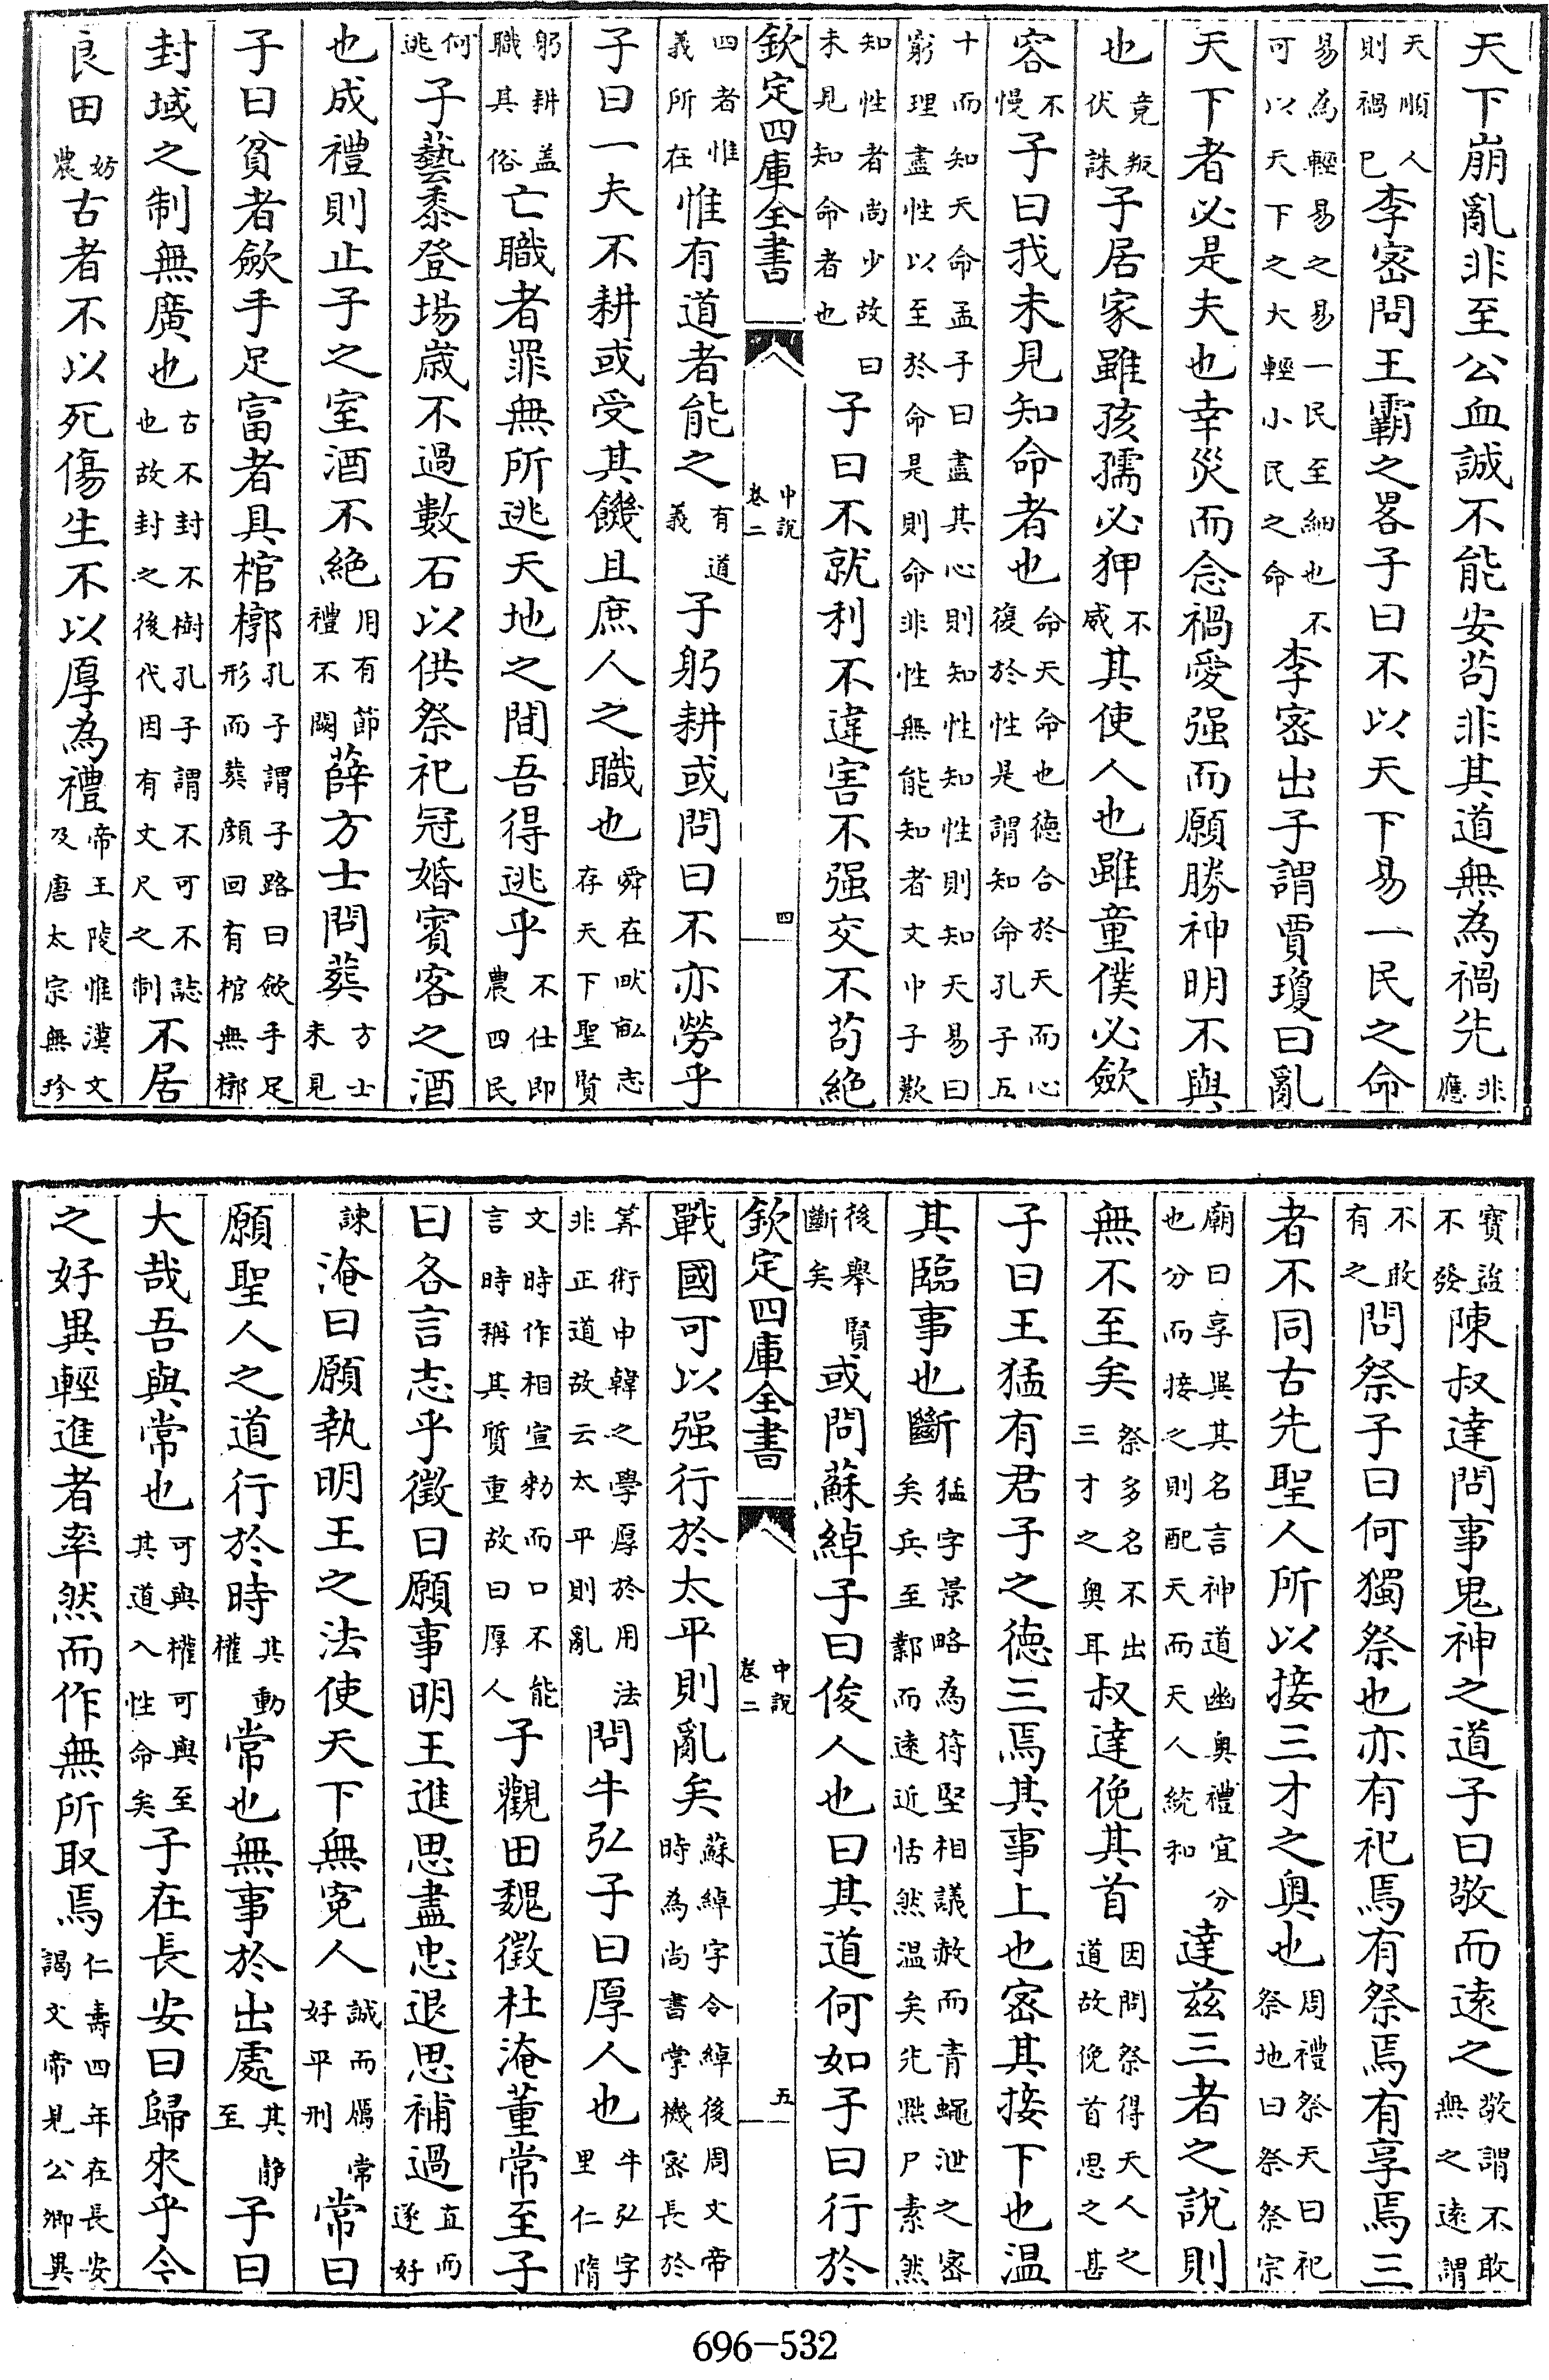 天下崩亂非至公血誠不能安茍非其道無為禍先非應
天順人則禍巳李宻問王霸之畧子曰不以天下易一民之命
易為輕易之易一民至細也不可以天下之大輕小民之命李宻出子謂賈瓊曰亂
天下者必是夫也幸災而念禍愛强而願勝神明不與
也竟叛伏誅子居家雖孩孺必狎不威其使人也雖童僕必歛
容不慢子曰我未見知命者也命天命也德合於天而心復於性是謂知命孔子五
十而知天命孟子曰盡其心則知性知性則知天易曰窮理盡性以至於命是則命非性無能知者文中子歎
知性者尚少故曰未見知命者也子曰不就利不違害不强交不茍絶
欽定四庫全書 中說 卷二 四
四者惟義所在惟有道者能之有道義子躬耕或問曰不亦勞乎
子曰一夫不耕或受其饑且庶人之職也舜在畎畝志存天下聖賢
躬耕盖職其俗亡職者罪無所逃天地之間吾得逃乎不仕即農四民
何逃子藝黍登場歳不過數石以供祭祀冠婚賓客之酒
也成禮則止子之室酒不絶用有節禮不闕薛方士問葬方士未見
子曰貧者歛手足富者具棺槨孔子謂子路曰歛手足形而葬顔回有棺無槨
封域之制無廣也古不封不樹孔子謂不可不誌也故封之後代因有丈尺之制不居
良田妨農古者不以死傷生不以厚為禮帝王陵惟漢文及唐太宗無珍
寶盜不發陳叔達問事鬼神之道子曰敬而逺之敬謂不敢無之逺謂
不敢有之問祭子曰何獨祭也亦有祀焉有祭焉有享焉三
者不同古先聖人所以接三才之奥也周禮祭天曰祀祭地曰祭祭宗
廟曰享異其名言神道幽奥禮宜分也分而接之則配天而天人統和達兹三者之說則
無不至矣祭多名不出三才之奥耳叔達俛其首因問祭得天人之道故俛首思之甚
子曰王猛有君子之德三焉其事上也宻其接下也温
其臨事也斷猛字景略為符堅相議赦而青蠅泄之宻矣兵至鄴而逺近恬然温矣先黜尸素然
後舉賢斷矣或問蘇綽子曰俊人也曰其道何如子曰行於
欽定四庫全書 中說 卷二 五
戰國可以强行於太平則亂矣蘇綽字令綽後周文帝時為尚書掌機宻長於
筭術申韓之學厚於用法非正道故云太平則亂問牛弘子曰厚人也牛弘字里仁隋
文時作相宣勑而口不能言時稱其質重故曰厚人子觀田魏徵杜淹董常至子
曰各言志乎徵曰願事明王進思盡忠退思補過直而遂好
諫淹曰願執明王之法使天下無寃人誠而厲好平刑常常曰
願聖人之道行於時其動權常也無事於出處其靜至子曰
大哉吾與常也可與權可與至其道入性命矣子在長安曰歸來乎今
之好異輕進者率然而作無所取焉仁壽四年在長安謁文帝見公卿異
696-532